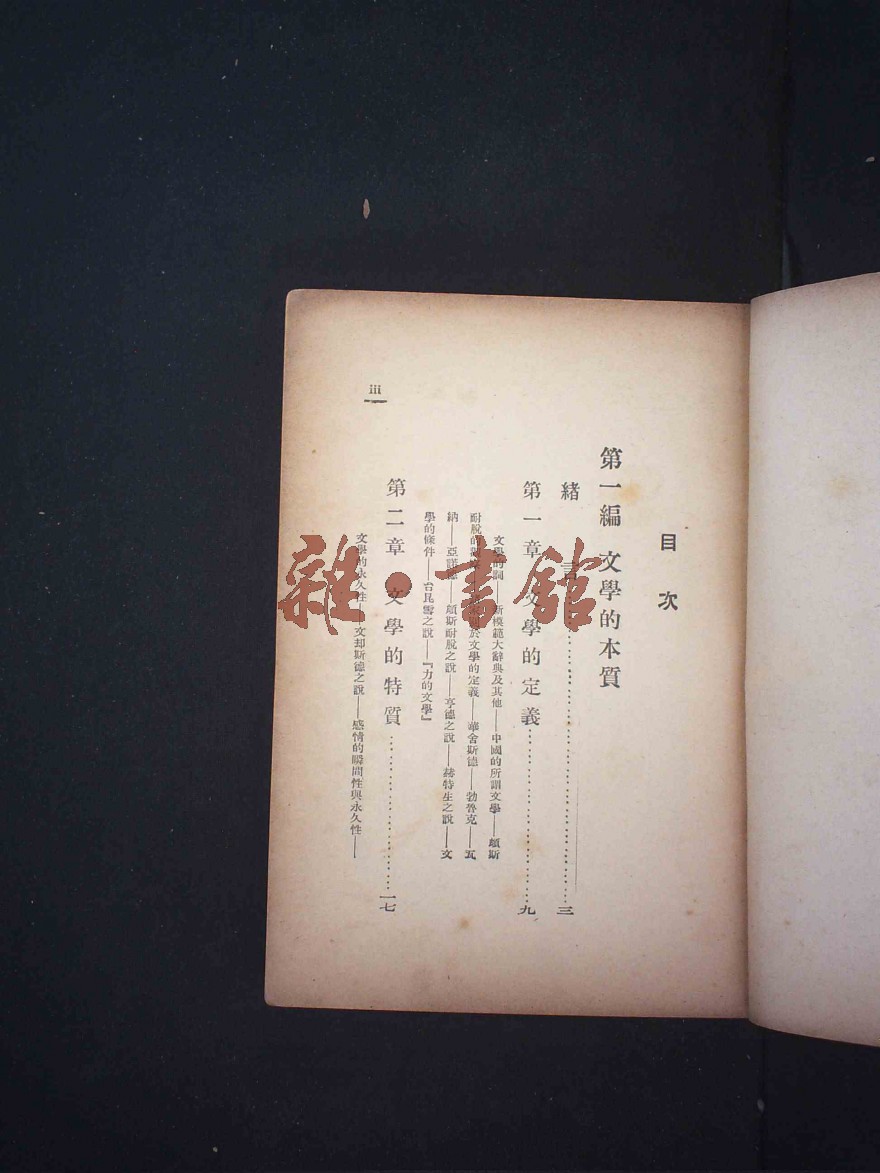 目次
第一編 文學的本質
緒言……三
第一章 文學的定義……九
文學的詞——新模範大辭典及其他——中國的所謂文學——頗斯
耐脫的於文學的定義——華舍斯德——勃魯克——瓦
納——亞諾德——頗斯耐脫之說——亨德之說——赫特生之說——文
學的條件——台昆雪之說——『力的文學』
第二章 文學的特質……一七
文學的永久性——文却斯德之說——感情的瞬間性與永久性——
iii
雜·書館